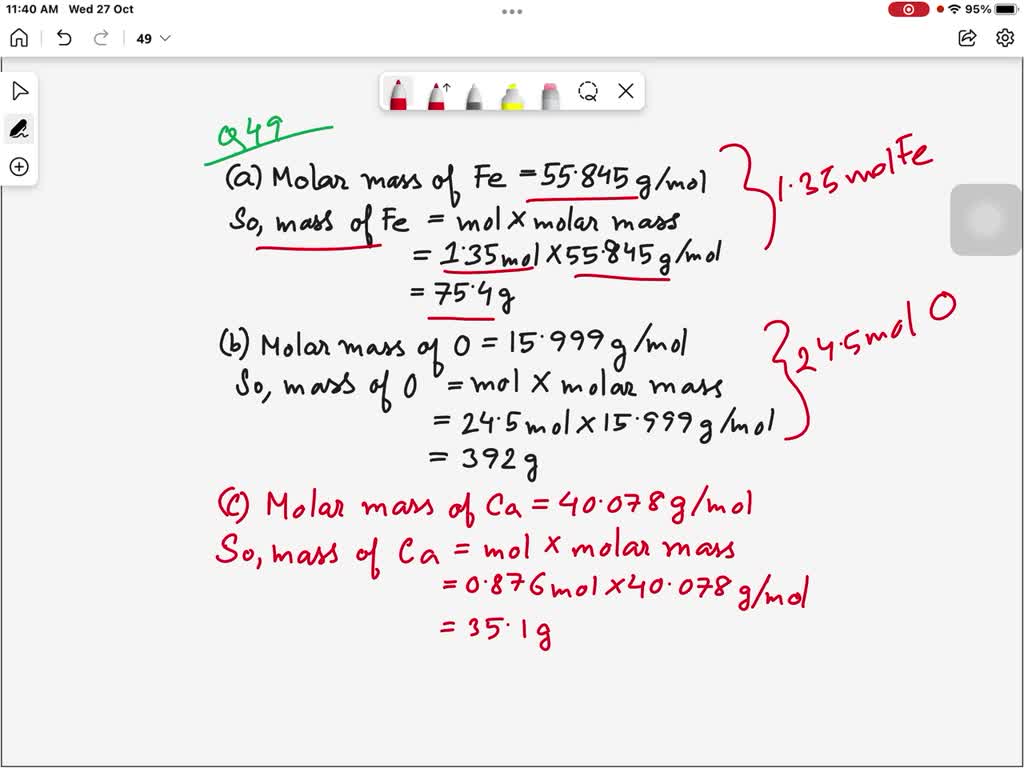 11:40 AM Wed 27 Oct
95%
49
Q49
(a) Molar mass of Fe = 55.845 g/mol
So, mass of Fe = mol × molar mass
= 1.35 mol × 55.845 g/mol
= 75.4 g
1.35 mol Fe
(b) Molar mass of O = 15.999 g/mol
So, mass of O = mol × molar mass
= 24.5 mol × 15.999 g/mol
= 392 g
24.5 mol O
(c) Molar mass of Ca = 40.078 g/mol
So, mass of Ca = mol × molar mass
= 0.876 mol × 40.078 g/mol
= 35.1 g